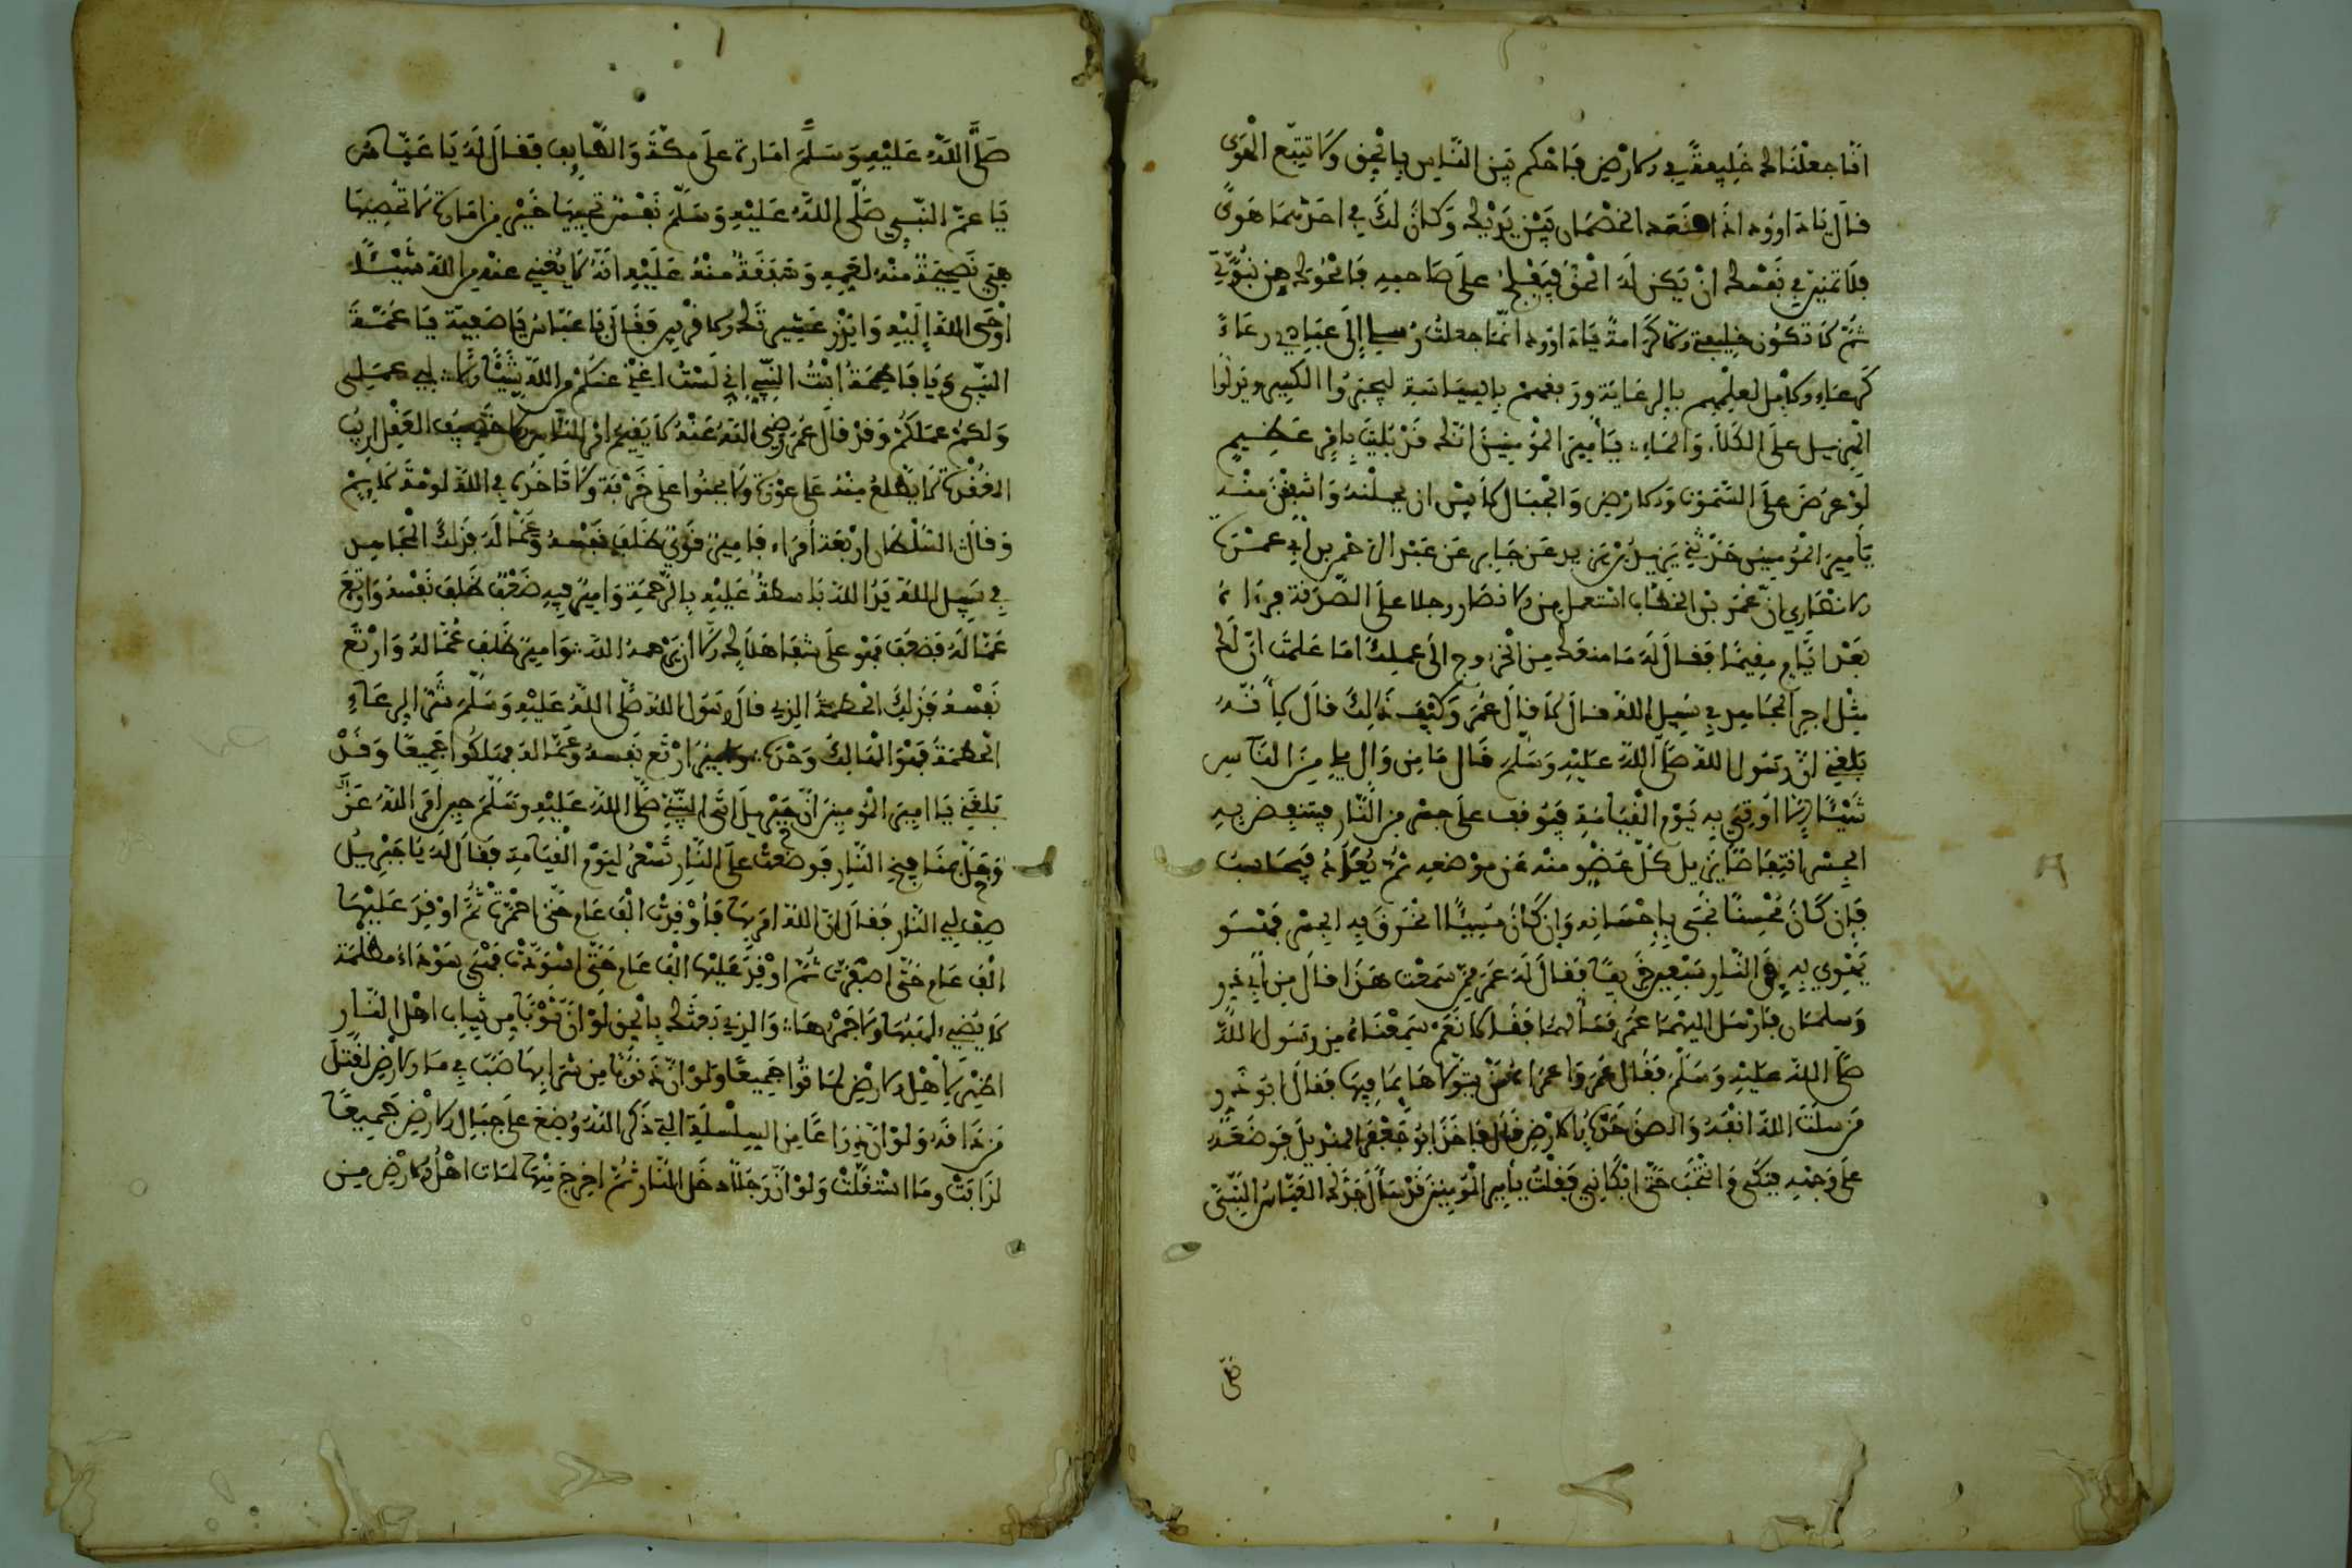 انا جعلناك خليفة في الارض فاحكم بين الناس بالحق ولا تتبع الهوى
قال يا داوود اذا قعد الخصمان بين يديك وكان لك في احدهما هوى
فلا تمنين في نفسك ان يكن له الحق فيفلح على صاحبه فامحوك من نبوتي
ثم لا تكون خليفتي ولا كرامة يا داوود انما جعلت رسلي إلى عبادي رعاء
كرعاء الابل لعلمهم بالرعاية ورفقهم بالسياسة ليجبروا الكسير ويدلوا
الهزيل على الكلا والماء يا أمير المؤمنين انك قد بليت بامر عظيم
لو عرض على السموات والارض والجبال لأبين ان يحملنه واشفقن منه
يا أمير المؤمنين حدثني يزيد بن يزيد عن جابر عن عبد الرحمن بن أبي عمرة
الانصاري ان عمر بن الخطاب استعمل من الانصار رجلا على الصدقة فرءاه
بعد ايام مقيما فقال له ما منعك من الخروج الى عملك اما علمت ان لك
مثل اجر المجاهد في سبيل الله قال لا قال عمر وكيف ذلك قال لأنه
بلغني ان رسول الله صلى الله عليه وسلم قال ما من وال يلي من الناس
شيئا الا اوتي به يوم القيامة فيوقف على جسر من النار فينتفض به
الجسر انتفاضا يزيل كل عضو منه عن موضعه ثم يعاد فيحاسب
فإن كان محسنا نجى بإحسانه وإن كان مسيئا انخرق به الجسر فهو
يهوي به في النار سبعين خريفا فقال له عمر ممن سمعت هذا قال من أبي ذر
وسلمان فارسل اليهما عمر فسألهما فقالا نعم سمعناه من رسول الله
صلى الله عليه وسلم فقال عمر واعمراه من يتولاها بما فيها فقال ابو ذر
من سلت الله انفه والصق خده بالارض قال فاخذ ابو جعفر المنديل فوضعه
على وجهه فبكى وانتحب حتى ابكاني فقلت يا أمير المؤمنين قد سأل جدك العباس النبي
صلى
صلى الله عليه وسلم امارة على مكة والطايف فقال له يا عباس
يا عم النبي صلى الله عليه وسلم نفس تحييها خير من امارة لا تحصيها
هي نصيحة منه لعمه وشفقة منه عليه انه لا يغني عنه من الله شيئا
اوحى الله إليه وانذر عشيرتك الاقربين فقال يا عباس يا صفية يا عمة
النبي ويا فاطمة ابنت النبي اني لست اغني عنكم من الله شيئا الا لي عملي
ولكم عملكم وقد قال عمر رضي الله عنه لا يقيم امر الناس الا حصيف العقل اريب
العقدة لا يطلع منه على عورة ولا يحنوا على خربة ولا تاخذه في الله لومة لايم
وقال السلطان اربعة أمراء فامير قوي ظلف نفسه وعماله فذلك المجاهد
في سبيل الله يد الله باسطة عليه بالرحمة وامير فيه ضعف ظلف نفسه وارتع
عماله فضعف فهو على شفا هلاك الا ان يرحمه الله وامير ظلف عماله وارتع
نفسه فذلك الحطمة الذي قال رسول الله صلى الله عليه وسلم شر الرعاء
الحطمة فهو الهالك وحده وامير ارتع نفسه وعماله فهلكوا جميعا وقد
بلغني يا امير المؤمنين أن جبريل اتى النبي صلى الله عليه وسلم حين امر الله عز
وجل بمنافيخ النار فوضعت على النار تسعر ليوم القيامة فقال له يا جبريل
صف لي النار فقال ان الله امر بها فأوقدت الف عام حتى احمرت ثم اوقد عليها
الف عام حتى اصفرت ثم اوقد عليها الف عام حتى اسودت فهي سوداء مظلمة
لا يضيء لهبها ولا جمرها والذي بعثك بالحق لو ان ثوبا من ثياب اهل النار
اظهر لأهل الارض لماتوا جميعا ولو ان ذنوبا من شرابها صب في ماء الارض لقتل
من ذاقه ولو ان ذراعا من السلسلة التي ذكر الله وضع على جبال الارض جميعا
لذابت وما استقلت ولو ان رجلا دخل النار ثم اخرج منها لمات اهل الارض من